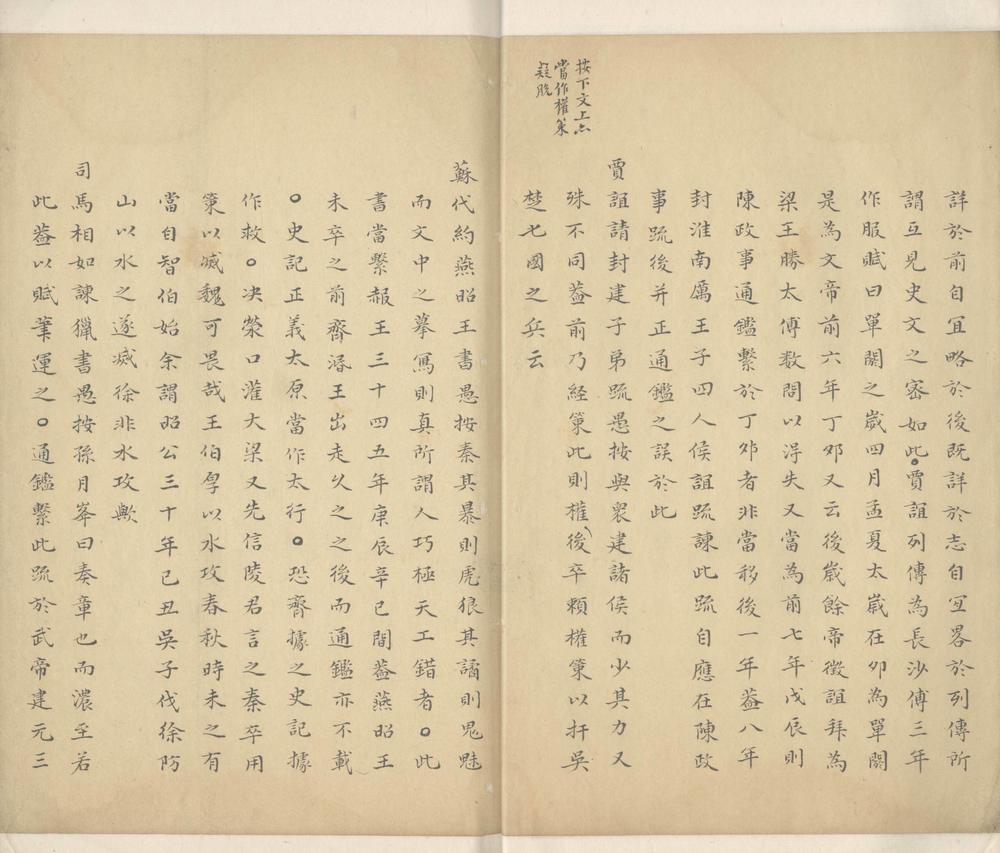 詳於前自宜略於後既詳於志自宜畧於列傳所
謂互見史文之密如此。賈誼列傳為長沙傅三年
作服賦曰單閼之歲四月孟夏太歲在夘為單閼
是為文帝前六年丁夘又云後歲餘帝徵誼拜為
梁王勝太傅数問以淂失又當為前七年戊辰則
陳政事通鑑繫於丁夘者非當移後一年葢八年
封淮南厲王子四人侯誼疏諫此疏自應在陳政
事疏後并正通鑑之誤於此
賈誼請封建子弟疏愚按與衆建諸侯而少其力又
殊不同葢前乃經䇿此則權後卒頼權䇿以扞吳
楚七國之兵云
按下文上六
當作權䇿
疑脫
蘇代約燕昭王書愚按秦其暴則虎狼其譎則鬼魅
而文中之摹寫則真所謂人巧極天工錯者。此
書當繫赧王三十四五年庚辰辛巳間葢燕昭王
未卒之前齊湣王出走乆之之後而通鑑亦不載
。史記正義太原當作太行。恐齊據之史記據
作救。决滎口灌大梁又先信陵君言之秦卒用
䇿以滅魏可畏哉王伯厚以水攻春秋時未之有
當自智伯始余謂昭公三十年己丑吳子伐徐防
山以水之遂滅徐非水攻歟
司馬相如諫獵書愚按孫月峯曰奏章也而濃至若
此葢以賦筆運之。通鑑繫此疏於武帝建元三